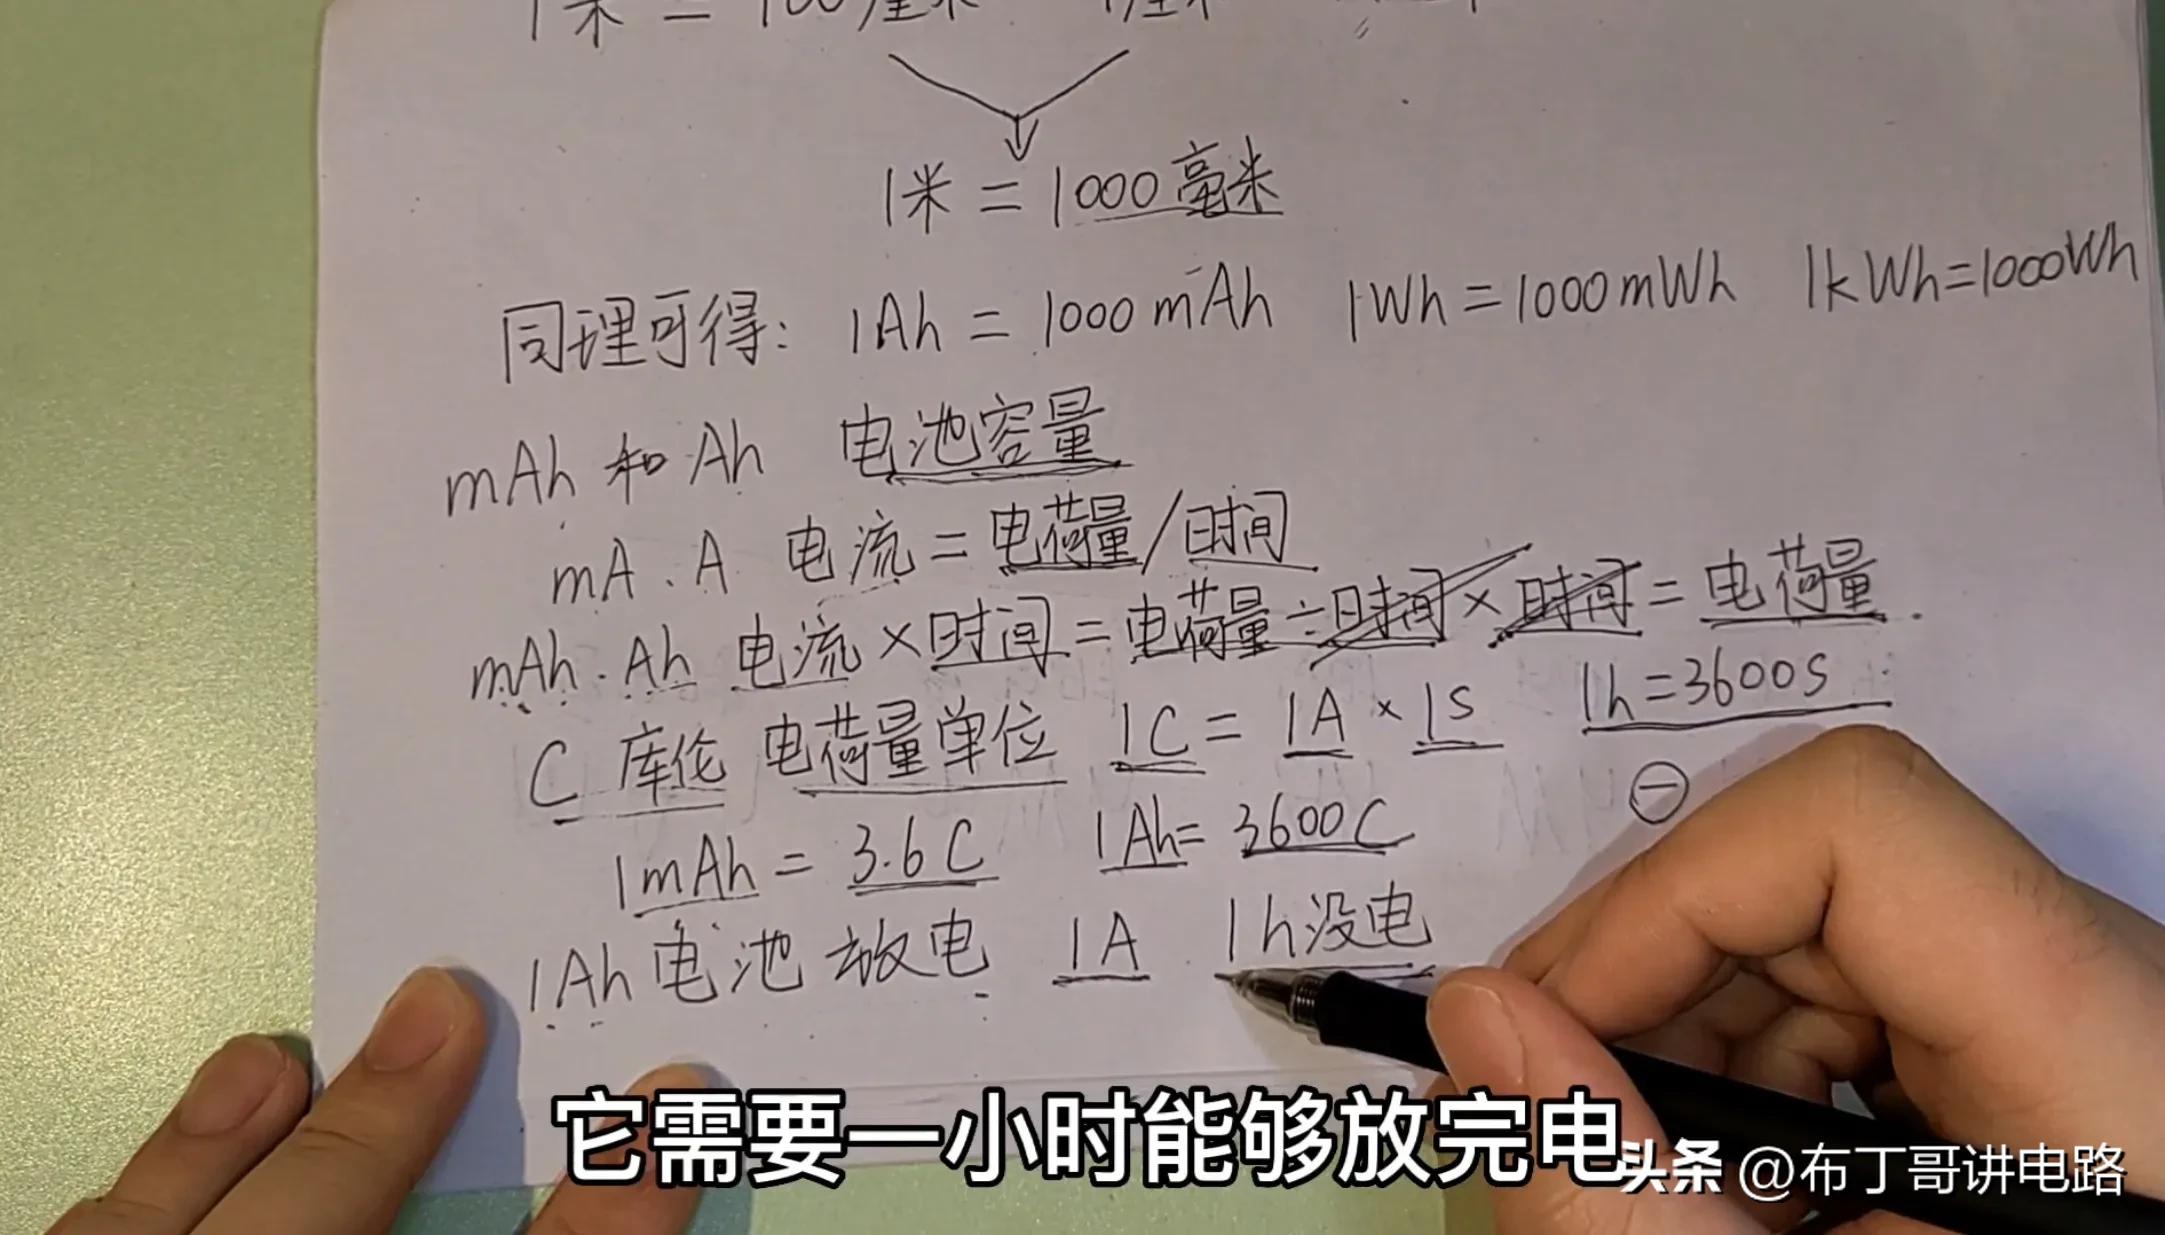 1米 = 100厘米 1厘米
1米 = 1000毫米
同理可得: 1Ah = 1000mAh 1Wh = 1000mWh 1kWh=1000Wh
mAh 和 Ah 电池容量
mA . A 电流 = 电荷量/时间
mAh . Ah 电流 × 时间 = 电荷量 ÷ 时间 × 时间 = 电荷量
C 库伦 电荷量单位 1C = 1A × 1S 1h=3600S
1mAh = 3.6C 1Ah= 3600C ⊖
1Ah电池放电 1A 1h没电
它需要一小时能够放完电
头条 @布丁哥讲电路